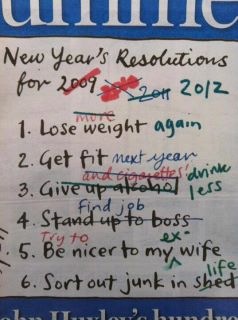 umme
New Year's Resolutions
for 2009 2011 2012
more
1. Lose weight again
2. Get fit next year
and cigarettes! drink
3. Give up alcohol less
Find job
4. Stand up to boss
Try to ex-
5. Be nicer to my wife
life
6. Sort out junk in shed
hn Huxley's hundre